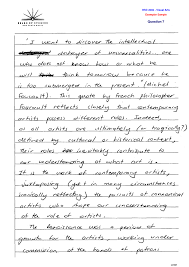 BOARD OF STUDIES
NEW SOUTH WALES
HSC 2001 - Visual Arts
Exemplar Sample
Question 7
"I want to discover the intellectual
destroyer of universalities... one
who does not know how or what he
will think tomorrow because he
is too submerged in the present" (Michel
Foucault). This quote by french philosopher
Foucault reflects closely that contemporary
artists possess different roles. Indeed,
as all artists are ultimately (or tangibly?)
defined by cultural or historical context,
their roles contribute to
our understanding of what art is.
It is the work of contemporary artists,
juxtaposing (yet in many circumstances
ironically reflecting) the pursuits of renaissance
artists who shape our understanding
of the role of artist.
The Renaissance was a period of
growth for the artists, working under
commission at the hands of patrons.